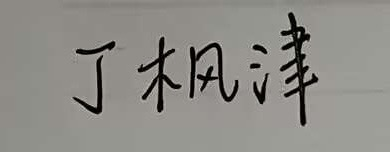 丁枫津